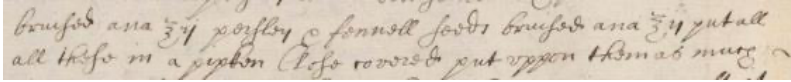 brused ana ℥ ij persley & fennell seeds brused ana ℥ ij put all
all these in a pipken Close covered put vppon them as much